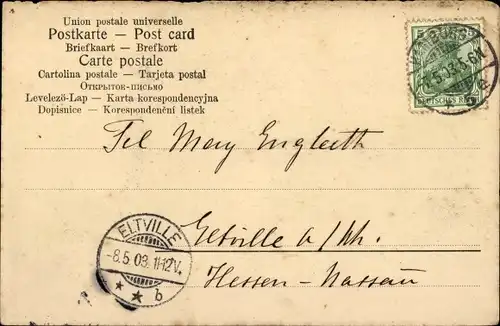 Union postale universelle
Postkarte — Post card
Briefkaart — Brefkort
Carte postale
Cartolina postale — Tarjeta postal
Открытое-письмо
Levelező-Lap — Karta korespondencyjna
Dopisnice — Korespondenční listek
DEUTSCHES REICH
Frl Mary
Eltville a/Rh.
Hessen-Nassau
ELTVILLE
-8.5.03.11-12V.
* * b